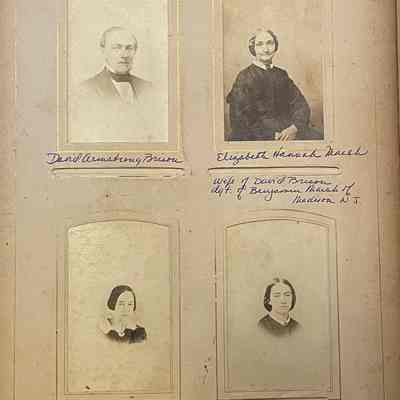 David Armstrong Brison
Elizabeth Hannah Marsh
Wife of David Brison
dgt. of Benjamin Marsh of
Madison N J.